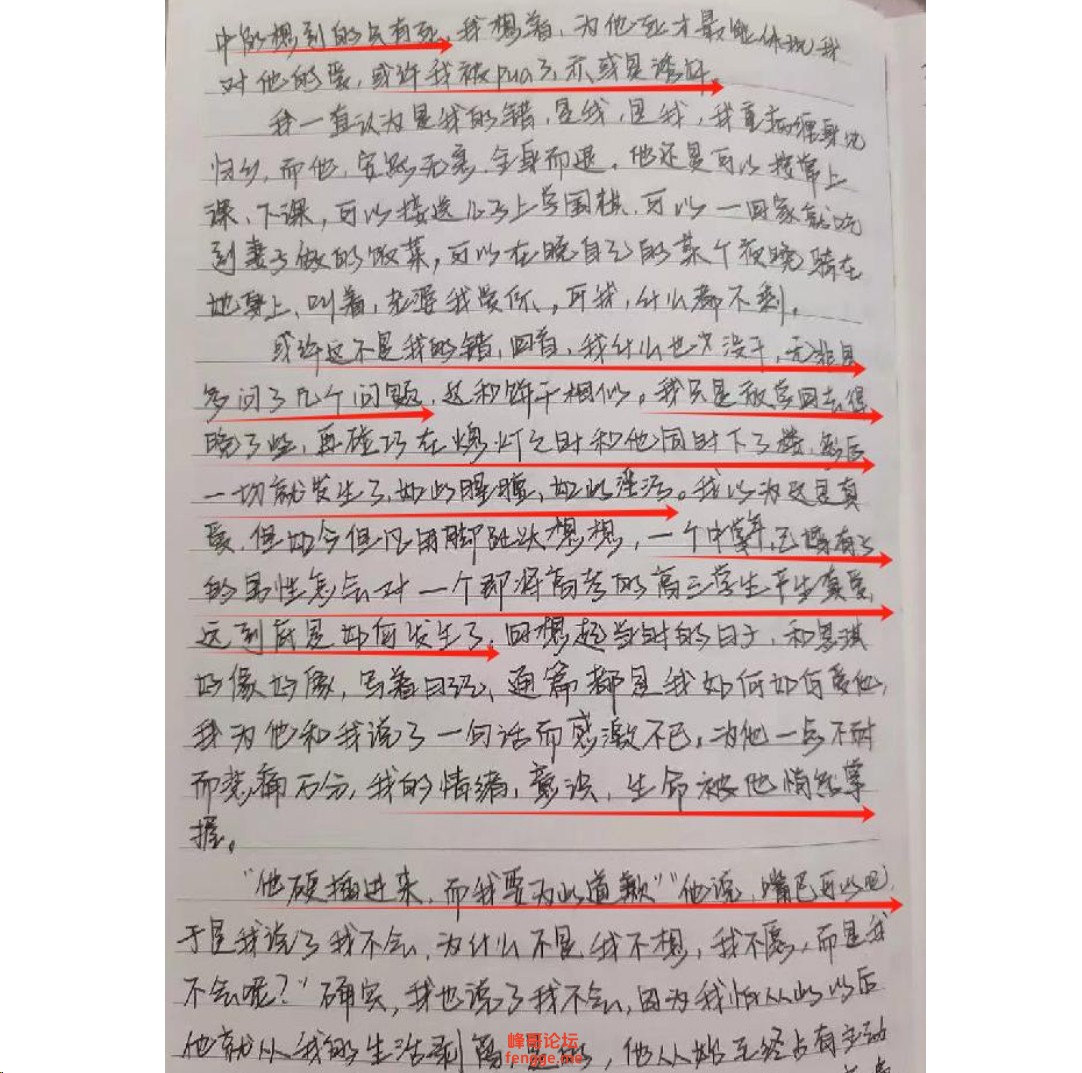 中能想到的只有死,我想着,为他死才最能体现我
对他的爱,或许我被pua了,亦或是诱奸。
我一直认为是我的错,是我,是我,我重病缠身
归乡,而他,安然无恙,全身而退。他还是可以按常上
课、下课,可以接送儿子上学围棋,可以一回家就吃
到妻子做的饭菜,可以在晚自习的某个夜晚骑在
她身上,叫着,老婆我爱你。可我,什么都不剩。
或许这不是我的错,回首,我什么也没干,无非是
多问了几个问题,这和饼干相似。我只是放学回去得
晚了些,再碰巧在熄灯之时和他同时下了楼,然后
一切就发生了,如此腥膻,如此淫污。我以为这是真
爱,但如今但凡用脚趾头想想,一个中年,已婚有子
的男性怎会对一个即将高考的高三学生产生真爱,
这到底是如何发生了。回想起当时的日子,和思淇
好像好像,写着日记,通篇都是我如何如何爱他,
我为他和我说了一句话而感激不已,为他一点不耐
而悲痛万分,我的情绪,意识,生命被他悄然掌
握。
“他硬插进来,而我要为此道歉”“他说,嘴巴可以吧
于是我说了我不会,为什么不是我不想,我不愿,而是我
不会呢?”确实,我也说了我不会,因为我怕从此以后
他就从我的生活剥离,是的,他从始至终占有主动
峰哥论坛
fengge.me